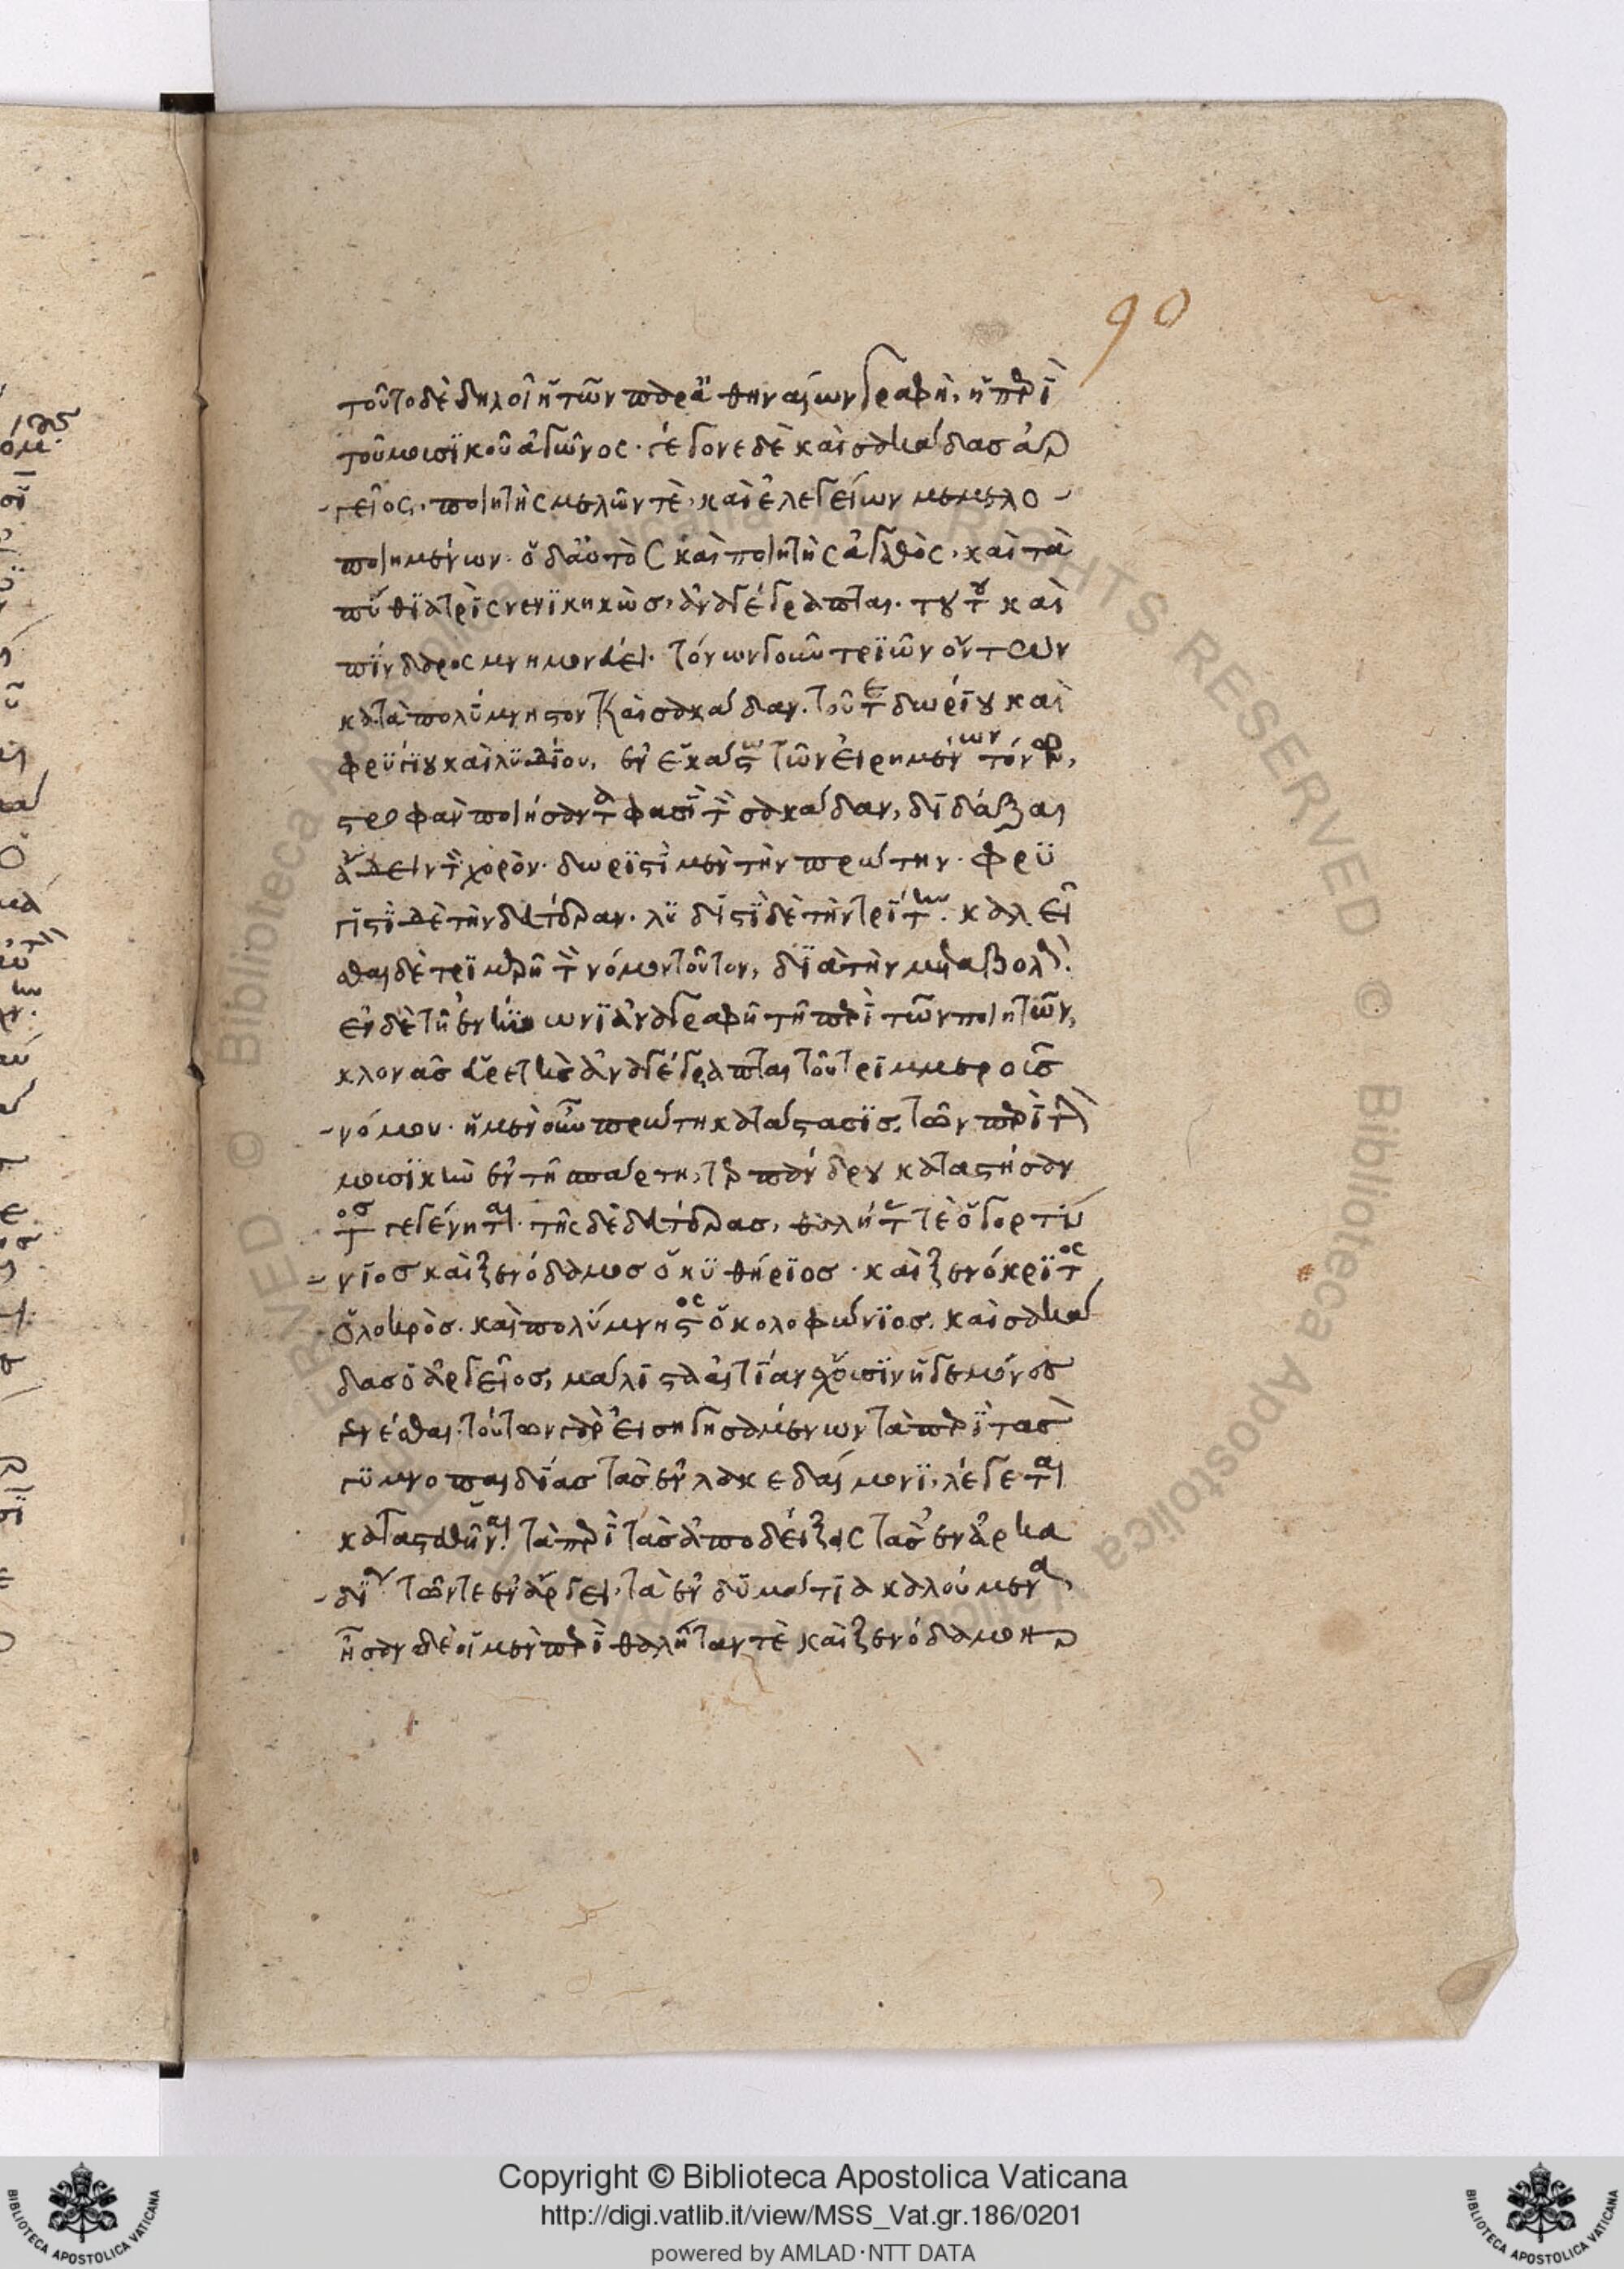 90
τοῦτο δὲ δηλοῖ ἡ τῶν παναθηναίων γραφὴ, ἡ περὶ
τοῦ μουσικοῦ ἀγῶνος· γέγονε δὲ καὶ σακάδας ἀρ
γεῖος, ποιητὴς μελῶν τὲ, καὶ ἐλεγείων μεμελο
ποιημένων· ὁ δ' αὐτὸς καὶ ποιητὴς ἀγαθὸς, καὶ τὰ
πύθια τρὶς νενικηκὼς, ἀναγέγραπται· τούτου καὶ
πίνδαρος μνημονεύει· τόνων γοῦν τριῶν ὄντων
κατὰ πολύμνηστον καὶ σακάδαν· τοῦ τε δωρίου καὶ
φρυγίου καὶ λυδίου, ἐν ἑκάστω τῶν εἰρημένων τόνων,
στροφὰν ποιήσαντα φασὶ τὸν σακάδαν, διδάξαι
ἄδειν τὸν χορὸν· δωριστὶ μὲν τὴν πρώτην· φρυ
γιστὶ δὲ τὴν δευτέραν· λυδιστὶ δὲ τὴν τρίτην· καλεῖ
σθαι δὲ τριμερῆ τὸν νόμον τοῦτον, διὰ τὴν μεταβολήν·
ἐν δὲ τῆ ἐν σικυῶνι ἀναγραφῆ τῆ περὶ τῶν ποιητῶν,
κλονᾶς εὑρετὴς ἀναγέγραπται τοῦ τριμμεροῖς
νόμου· ἡ μὲν οὖν πρώτη κατάστασις, τῶν περὶ τὴν
μουσικὴν ἐν τῆ σπάρτη, τερπάνδρου καταστήσαν
τος γεγένηται· τῆς δὲ δευτέρας, θαλήτας τὲ ὁ γορτύ
νιος καὶ ξενόδαμος ὁ κυθήριος· καὶ ξενόκριτος
ὁ λοκρὸς· καὶ πολύμνηστος ὁ κολοφώνιος· καὶ σακά
δας ὁ ἀργεῖος, μάλιστα αἰτίαν ἔχουσιν ἡγεμόνες
γενέσθαι· τούτων γὰρ εἰσηγησαμένων τὰ περὶ τὰς
γυμνοπαιδίας τὰς ἐν λακεδαίμονι, λέγεται
κατασταθῆναι τὰ περὶ τὰς ἀποδείξεις τὰς ἐν ἀρκα
δία· τῶν τε ἐν ἄργει, τὰ ἐν δυμάτια καλούμενα,
ἦσαν δὲ οἱ μὲν περὶ θαλήταν τὲ καὶ ξενόδαμον
Copyright © Biblioteca Apostolica Vaticana
http://digi.vatlib.it/view/MSS_Vat.gr.186/0201
powered by AMLAD·NTT DATA